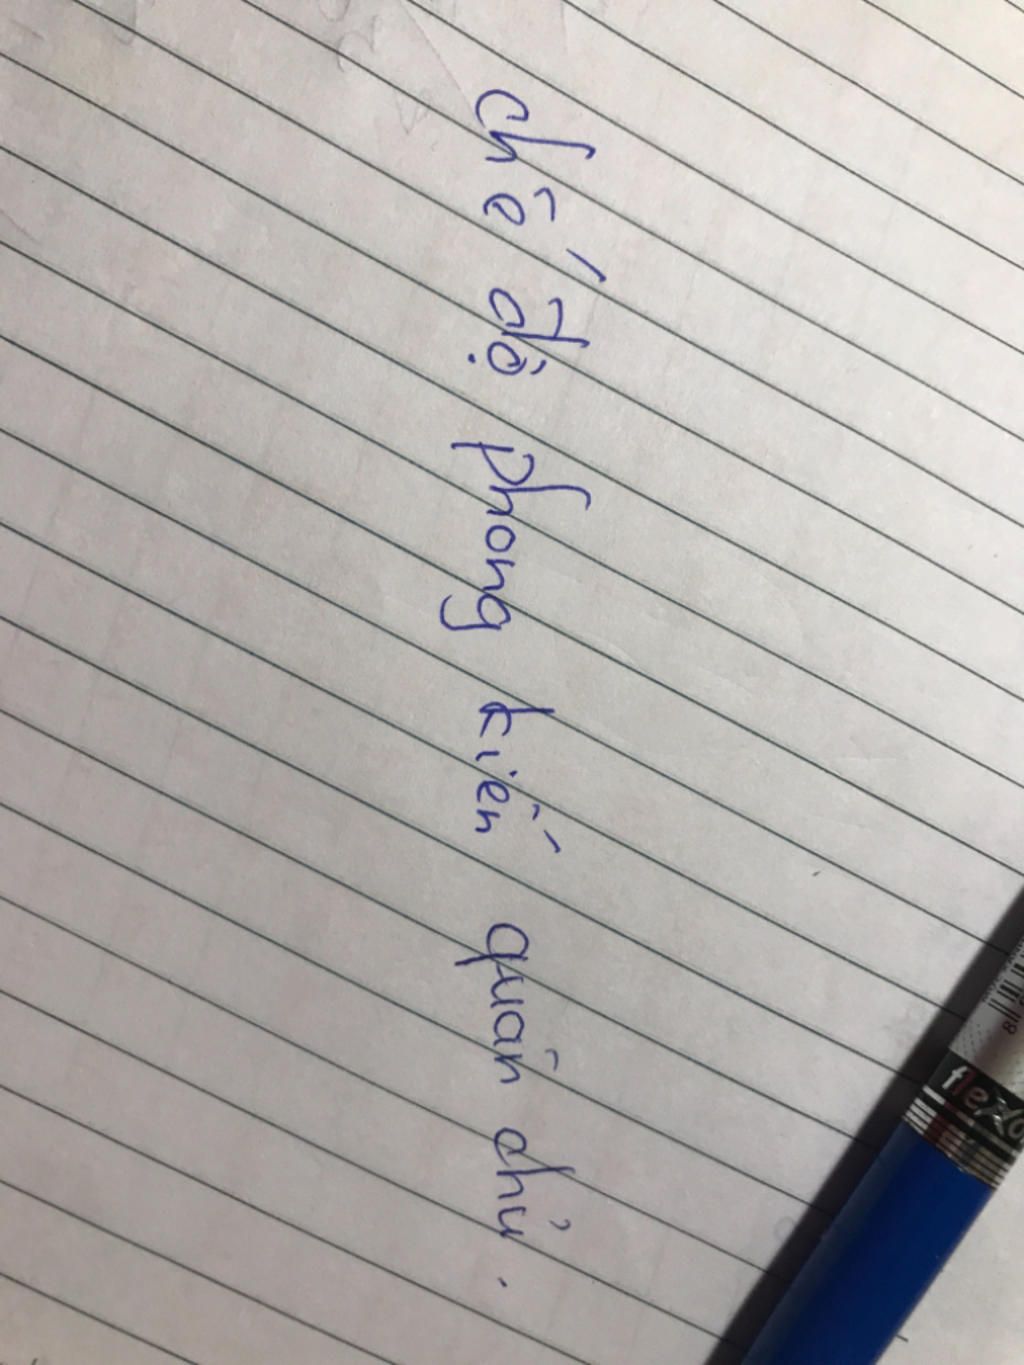 chế độ phong kiến quân chủ.
flexo